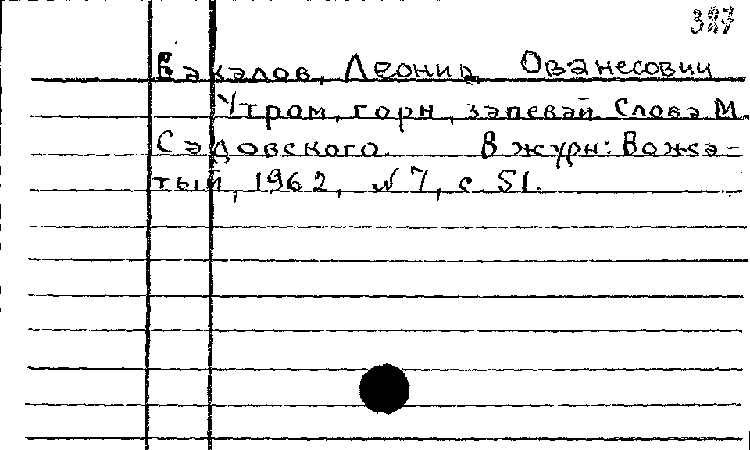 387
Бакалов, Леонид Ованесович
Утром, горн, запевай. Слова М.
Садовского. В журн: Вожа-
тый, 1962, № 7, с 51.